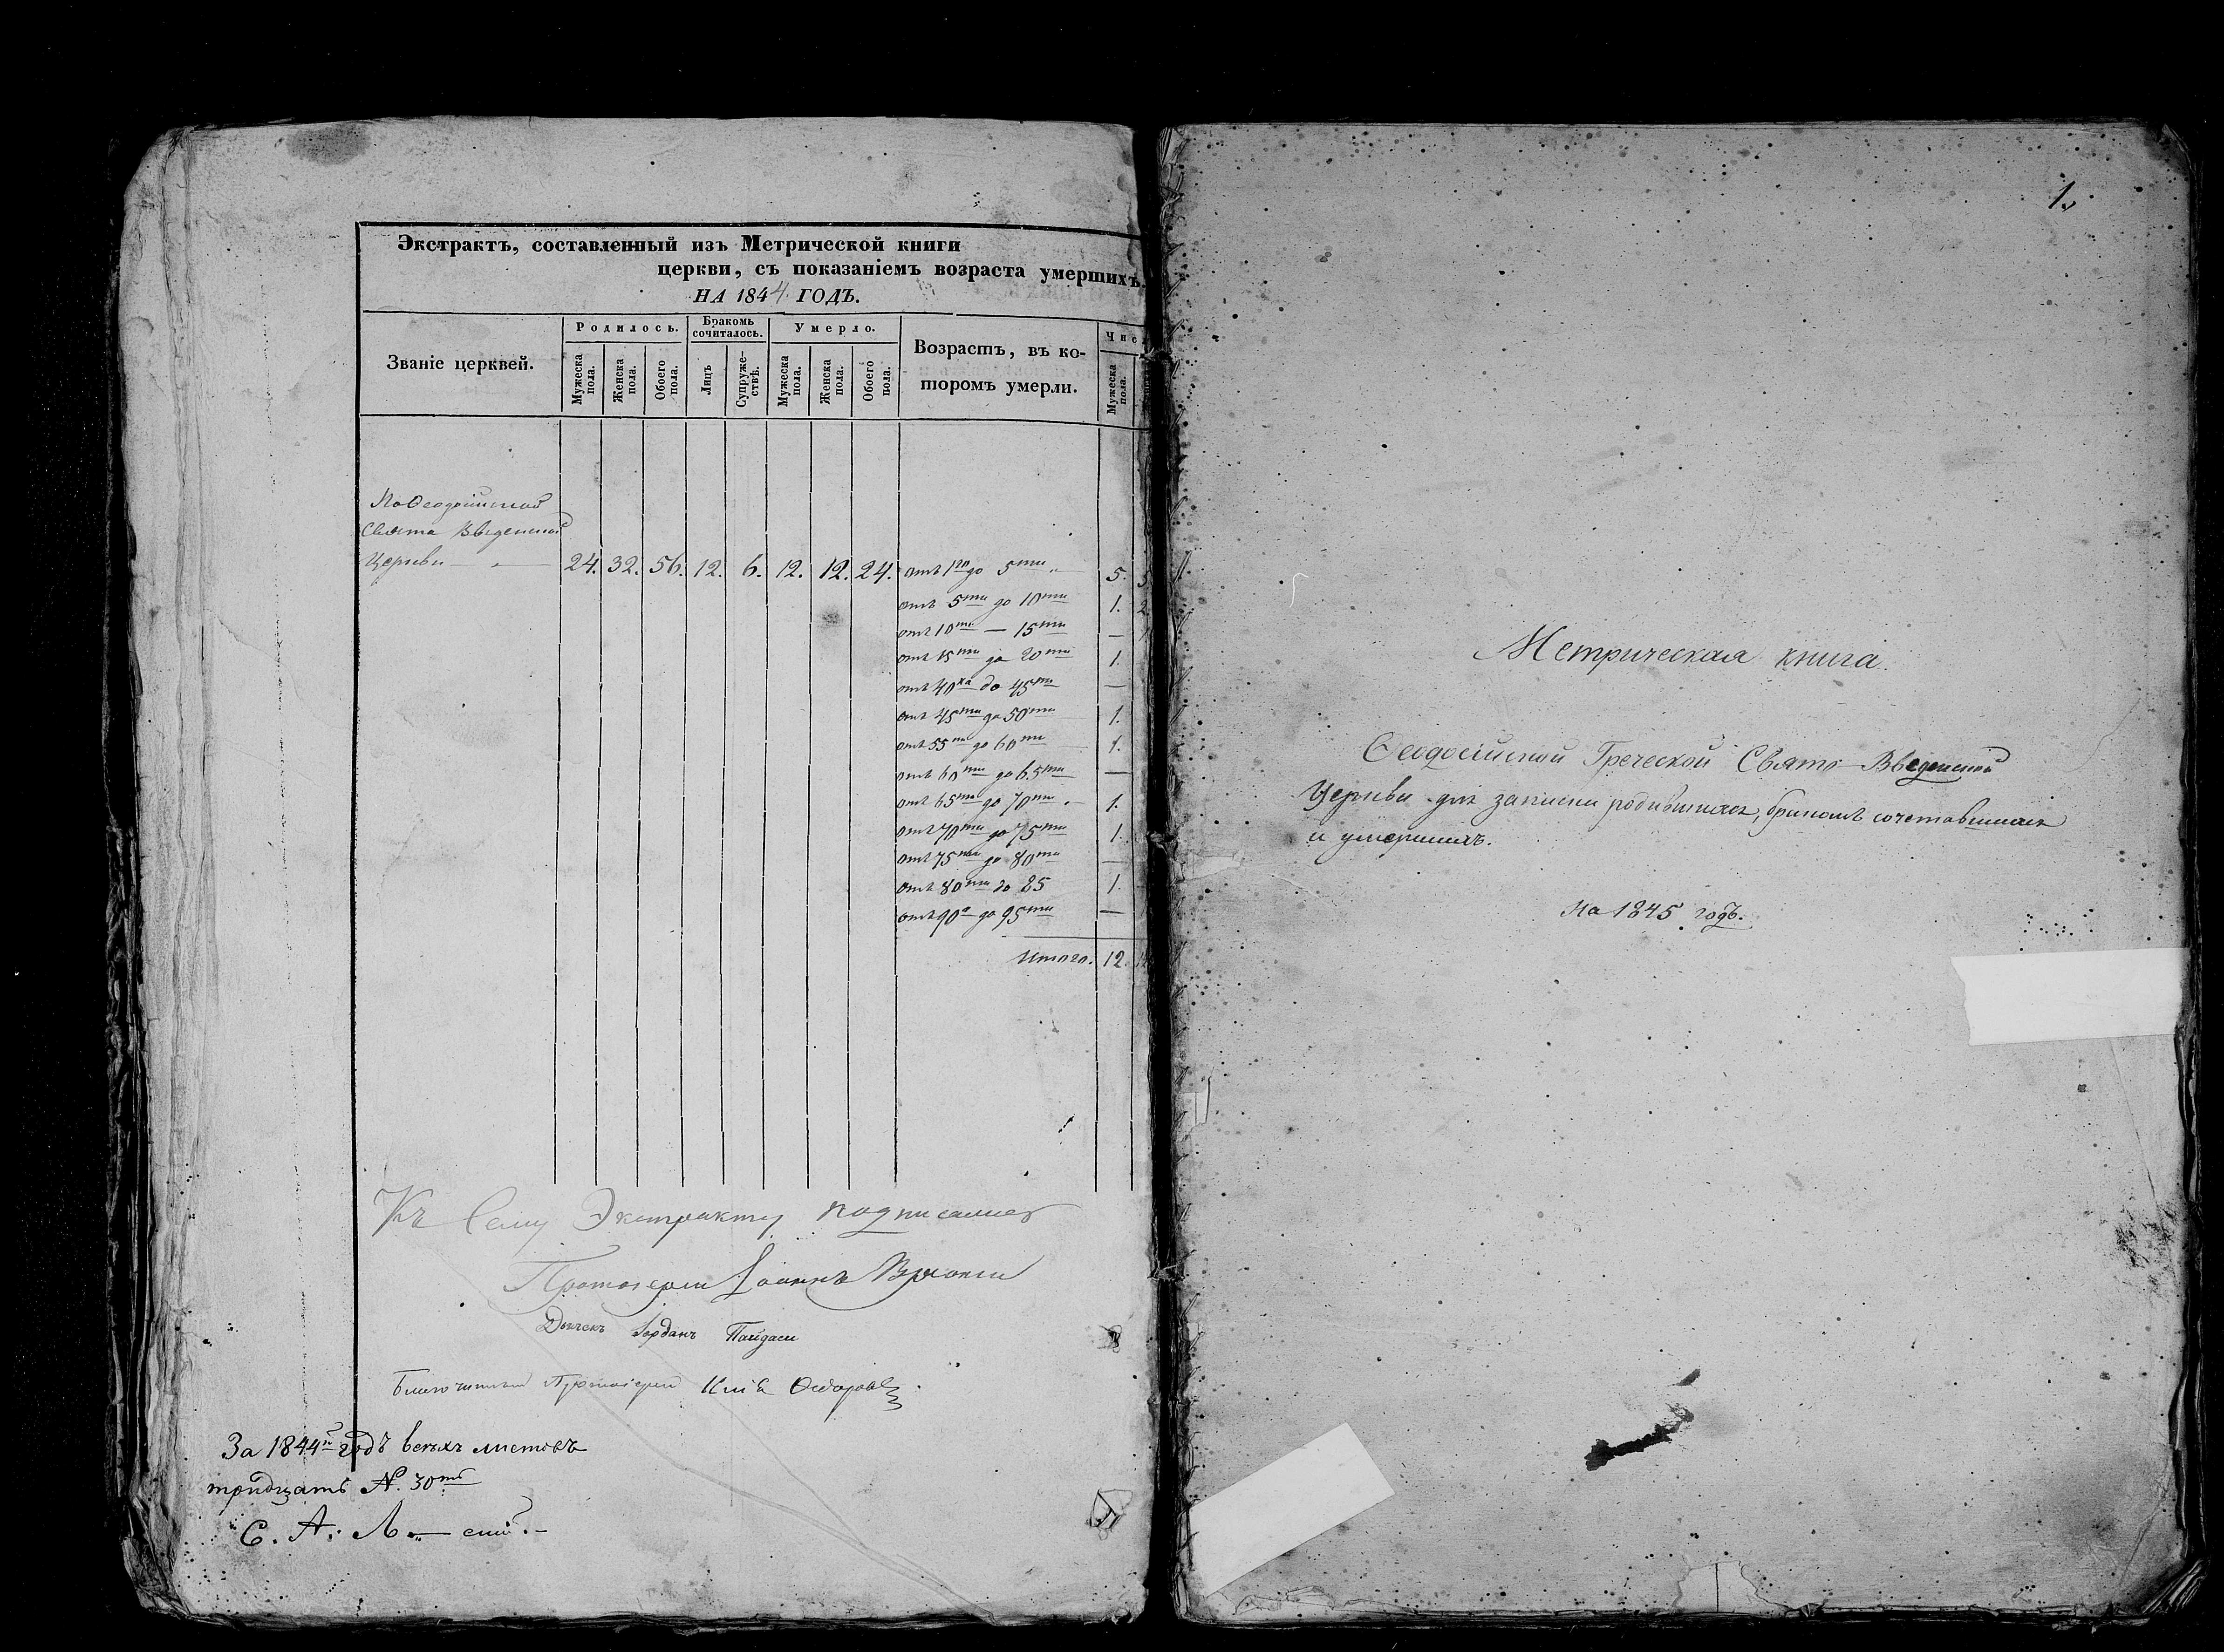 Экстрактъ, составленный изъ Метрической книги
церкви, съ показаніемъ возраста умершихъ
НА 1844 ГОДЪ.
Званіе церквей.
Родилось.
Мужеска пола.
Женска пола.
Обоего пола.
Бракомъ сочиталось.
Лицъ
Супружествъ.
Умерло.
Мужеска пола.
Женска пола.
Обоего пола.
Возрастъ, въ ко-
торомъ умерли.
Чис
Мужеска пола.
По Ѳеодосійской
Свято Введенской
Церкви — 24. 32. 56. 12. 6. 12. 12. 24. отъ 1го до 5ти 5. 5
отъ 5ти до 10ти 1. 2
отъ 10ти — 15ти —
отъ 15ти до 20ти 1.
отъ 40ка до 45ти —
отъ 45ти до 50ти 1.
отъ 55ти до 60ти 1.
отъ 60ти до 65ти —
отъ 65ти до 70ти 1.
отъ 70ти до 75ти 1.
отъ 75ти до 80ти —
отъ 80ти до 85 1.
отъ 90а до 95ти —
Итого. 12.
Къ Сему Экстракту подписались
Протоіерей Іоаннъ
Дьячекъ Іорданъ
Благочинный Протоіерей
За 1844й годъ всѣхъ листовъ
тридцать №. 30ть
С. А. Л.—скій.—
1.
Метрическая книга
Ѳеодосійской Греческой Свято-Введенской
Церкви для записки родившихся, бракомъ сочетавшихся
и умершихъ.
на 1845 годъ.